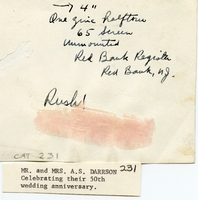 → 4"
One zinc halftone
65 Screen
Unmounted
Red Bank Register
Red Bank, NJ.
Rush!
CAT 231
231
MR. and MRS. A.S. DARRSON
Celebrating their 50th
wedding anniversary.